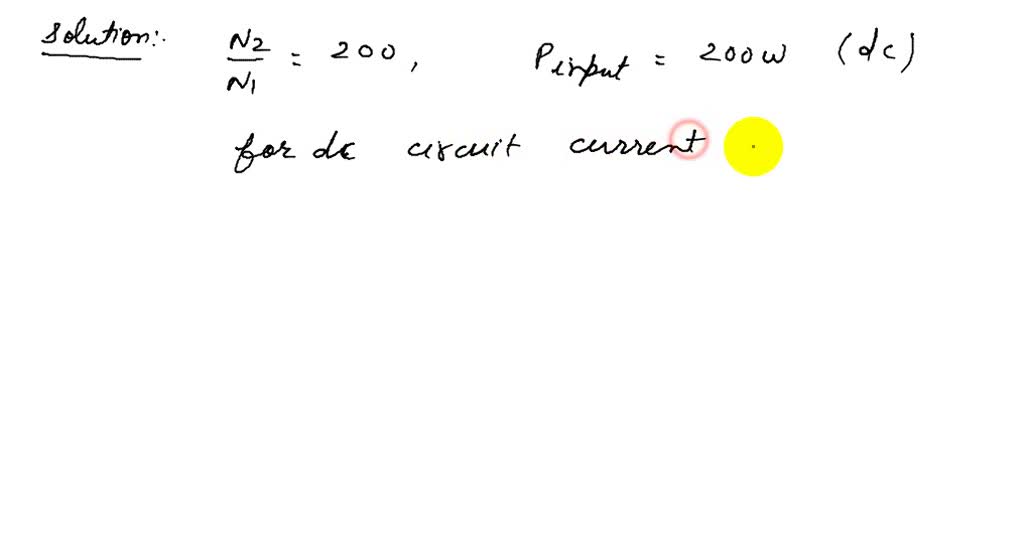 Solution:.
N2/N1 = 200, Pinput = 200W (dc)
for dc circuit current